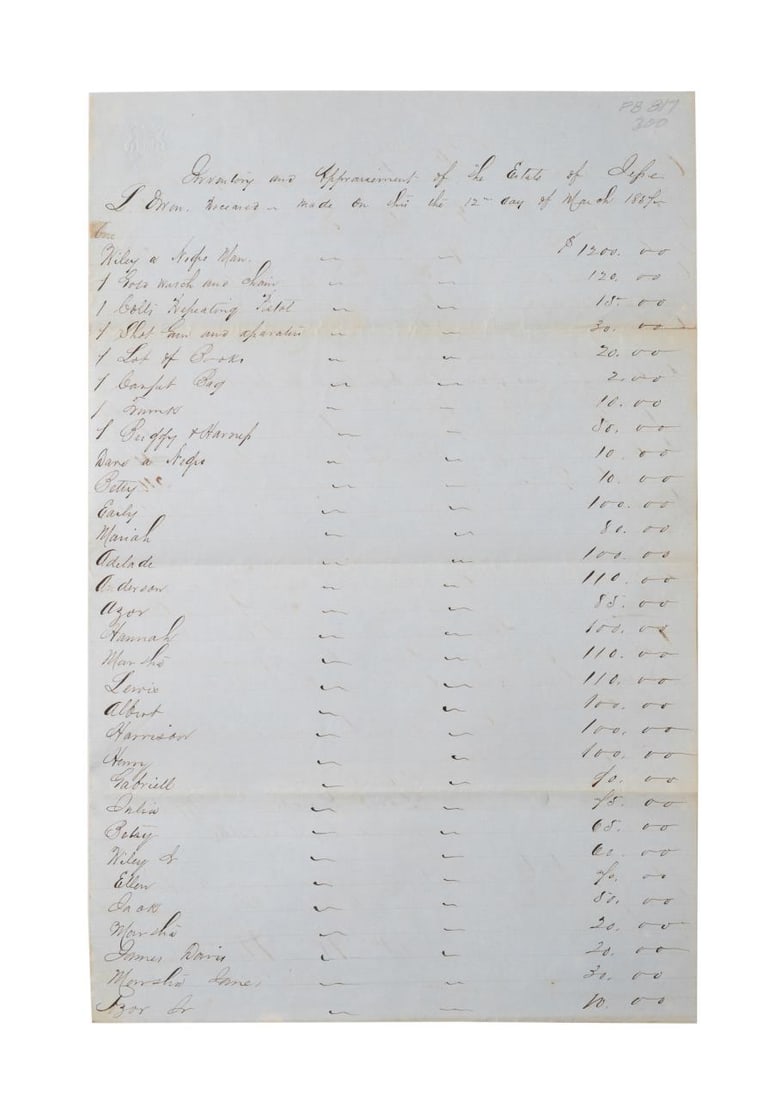 PB 817
300
Inventory and Appraisement of the Estate of Jesse
L Deceased made on this the 12th day of March 1857
Wiley a Negro Man. $1200.00
1 Gold Watch and Chain 120.00
1 Colts Repeating Pistol 15.00
1 Shot Gun and aparatus 30.00
1 Lot of Books 20.00
1 Carpet Bag 2.00
1 Trunk 10.00
1 Buggy & Harness 80.00
a Negro 10.00
Betsy 10.00
Early 100.00
Mariah 80.00
Adelade 100.00
Anderson 110.00
Azor 85.00
Hannah 100.00
Marsha 110.00
Lewis 110.00
Albert 100.00
Harrison 100.00
Henry 100.00
Gabriell 90.00
Julia 75.00
Betsy 65.00
Wiley Jr 60.00
Ellen 70.00
Jack 50.00
Marsha 20.00
James Davis 20.00
Marsha Jones 30.00
Azor Jr 10.00